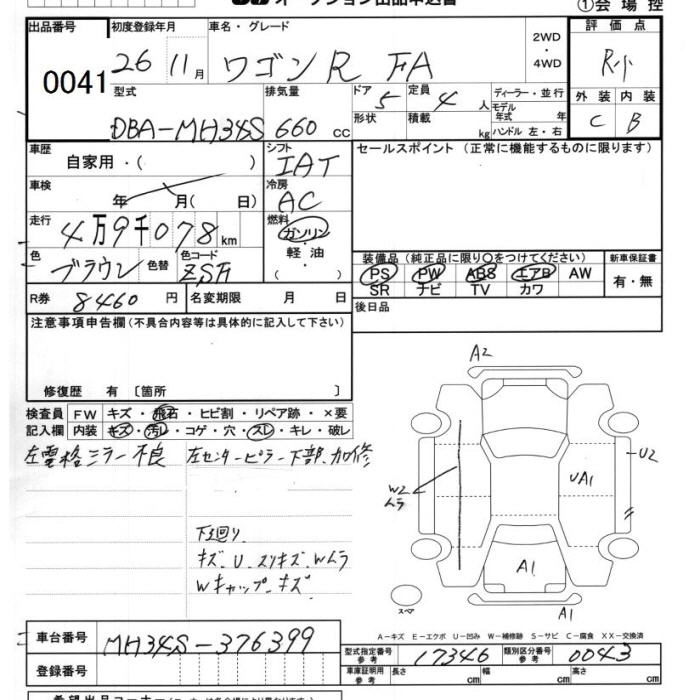 オークション出品申込書
①会場控
出品番号 初度登録年月 車名・グレード 評価点
0041 26 11月 ワゴンR FA 2WD・4WD R小
型式 排気量 ドア 定員 ディーラー・並行 外装 内装
DBA-MH34S 660cc 5 4人 モデル年式 年 C B
形状 積載 kg ハンドル 左・右
車歴 シフト セールスポイント (正常に機能するものに限ります)
自家用・( ) IAT
車検 冷房
年 月( 日) AC
走行 燃料
4万9千078km ガソリン・軽油・( )
色 色替 色コード 装備品 (純正品に限り○をつけてください) 新車保証書
ブラウン PS PW ABS エアB AW 有・無
SR ナビ TV カワ
R券 8460円 名変期限 月 日 後日品
注意事項申告欄 (不具合内容等は具体的に記入して下さい)
修復歴 有 〔箇所 〕
検査員 FW キズ・飛石・ヒビ割・リペア跡・×要
記入欄 内装 キズ・汚レ・コゲ・穴・スレ・キレ・破レ
左電格ミラー不良 左センターピラー下部、加修
下廻り、
キズ、U、スリキズ、Wムラ
Wキャップ、キズ
A2
U2
W2
ムラ
UA1
A1
スペ
A1
A-キズ E-エクボ U-凹み W-補修跡 S-サビ C-腐食 XX-交換済
車台番号 MH34S-376399
型式指定番号 参考 17346 類別区分番号 参考 0043
登録番号 車庫証明用 参考 長さ cm 幅 cm 高さ cm
希望出品コーナー